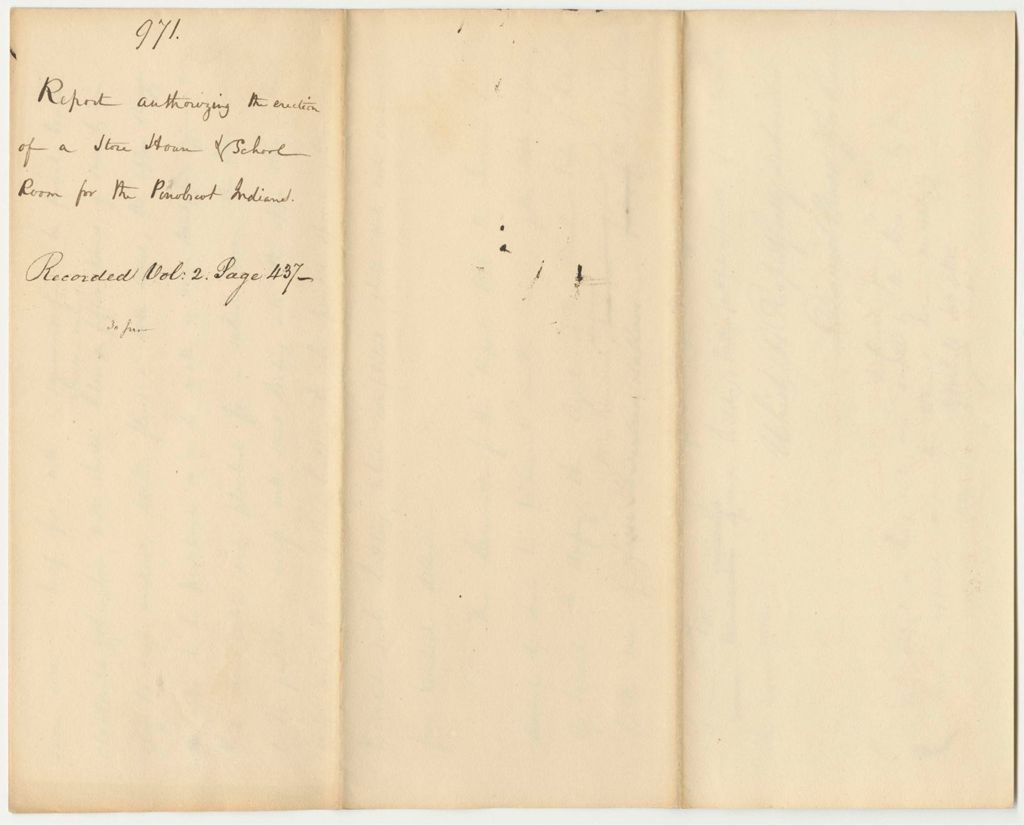 971.
Report authorizing the erection
of a Store House & School
Room for the Penobscot Indians.
Recorded Vol: 2. Page 437-